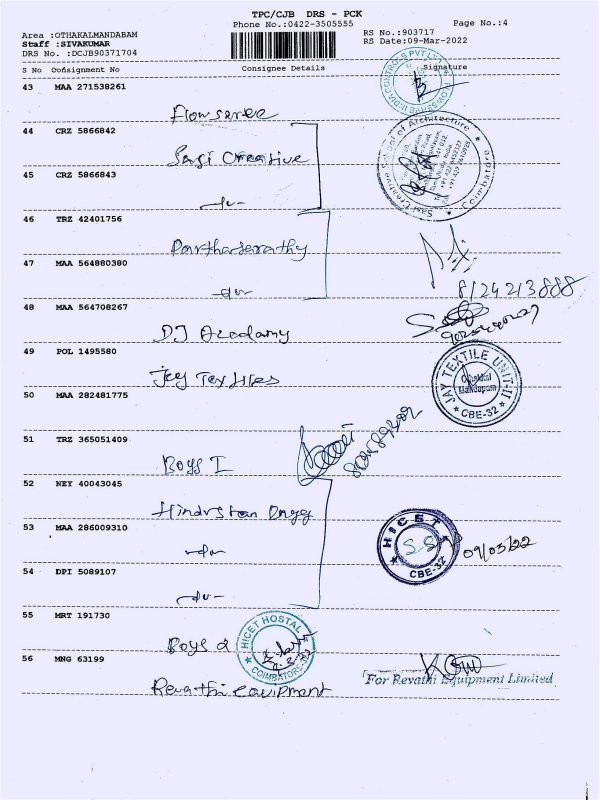 TPC/CJB DRS - PCK
Phone No.:0422-3505555
Page No.:4
Area :OTHAKALMANDABAM
Staff :SIVAKUMAR
DRS No. :DCJB90371704
RS No.:903717
RS Date:09-Mar-2022
S No Consignment No Consignee Details Signature
43 MAA 271538261
Flowserve
44 CRZ 5866842
Sasi Creative
45 CRZ 5866843
-do-
46 TRZ 42401756
Parthaserathy
47 MAA 564880380
-do-
8124213888
48 MAA 564708267
DJ Acadamy
49 POL 1495580
Jay Textiles
JAY TEXTILE UNIT-II
CBE-32
50 MAA 282481775
51 TRZ 365051409
Boys I
52 NEY 40043045
Hindustan Engg
53 MAA 286009310
-do-
HICET
CBE-32
09/03/22
54 DPI 5089107
-do-
55 MRT 191730
Boys 2
HICET HOSTAL
COIMBATORE-32
56 MNG 63199
Revathi equipment
For Revathi Equipment Limited
Sasi Creative School of Architecture
Coimbatore